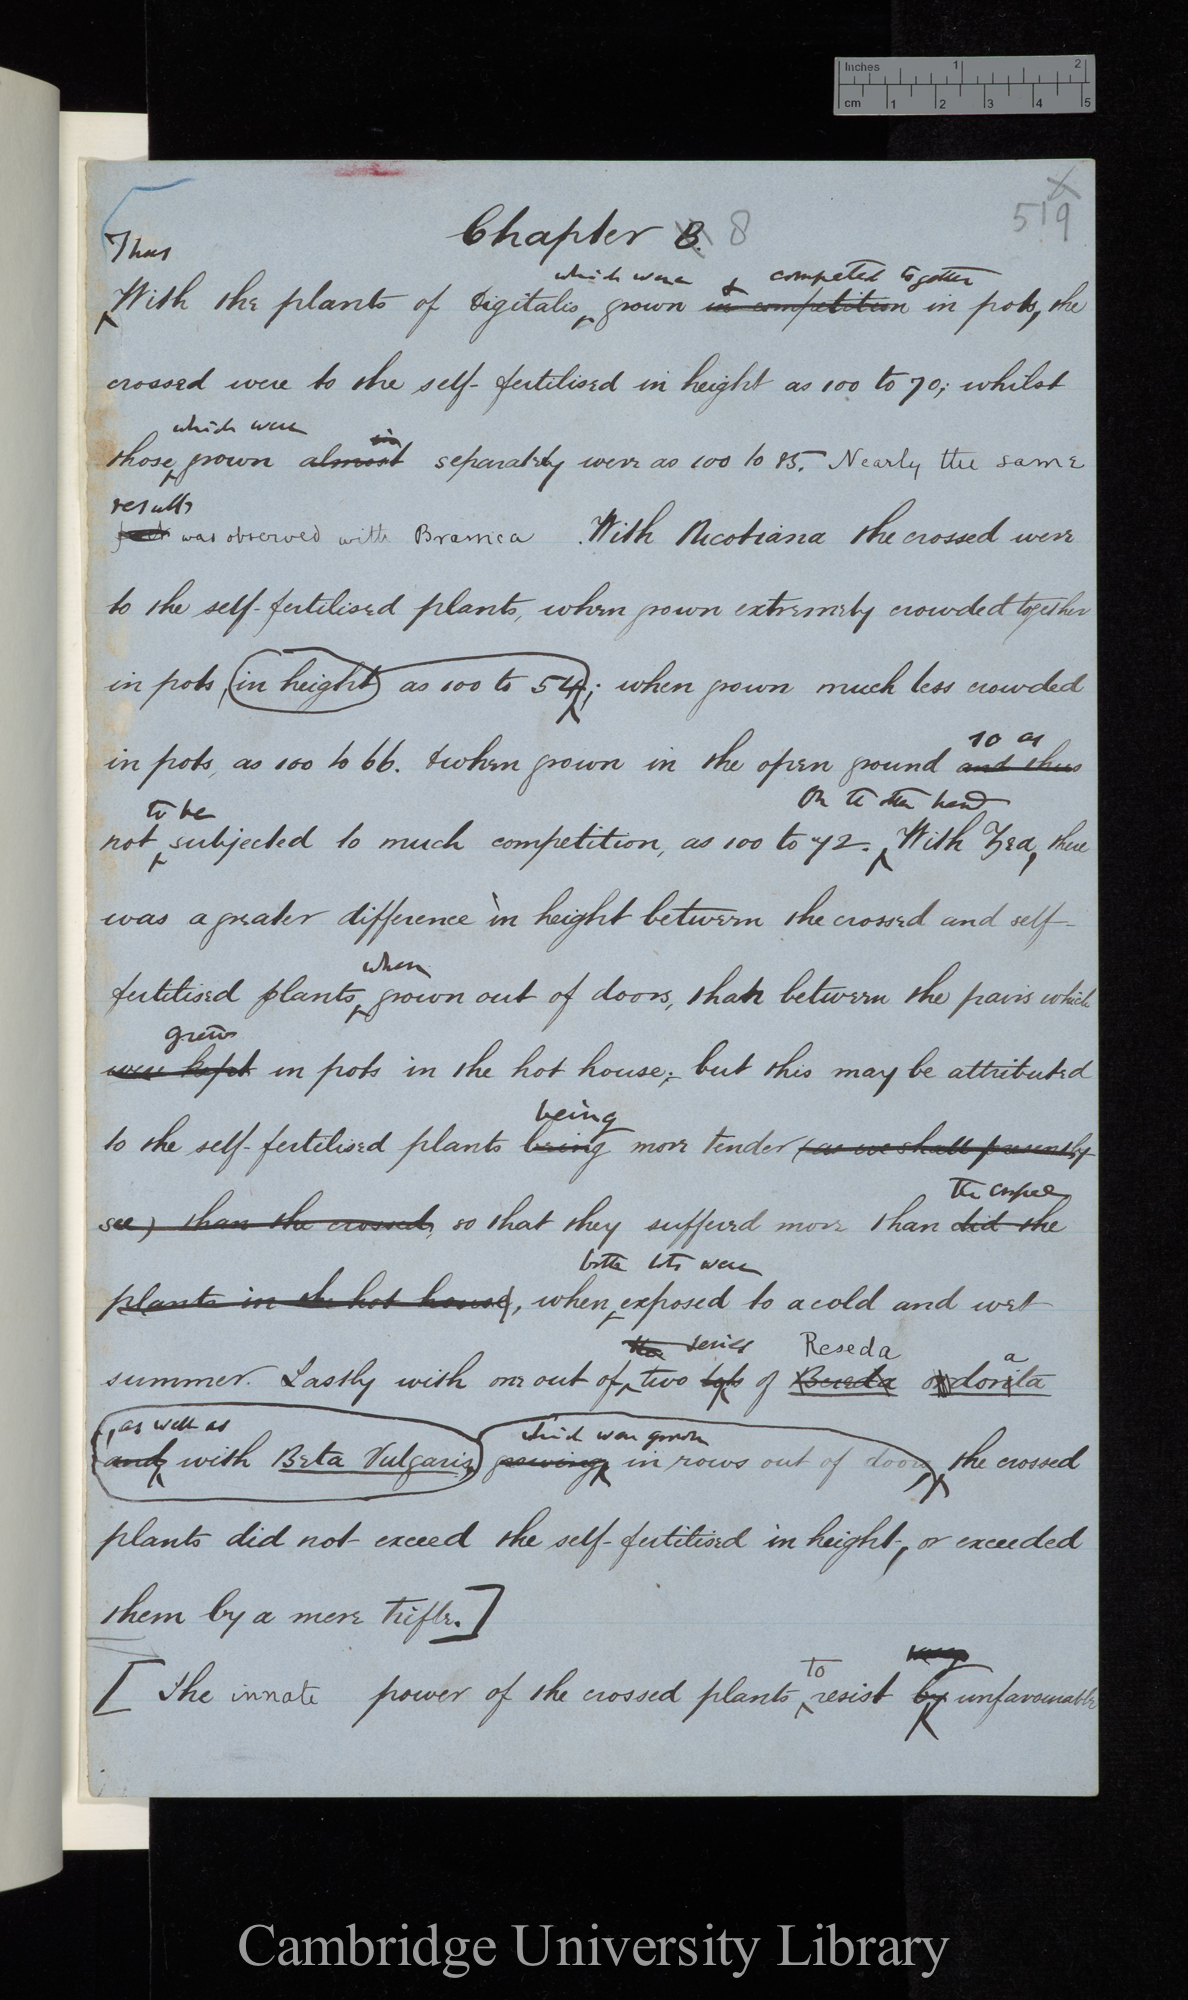 Inches 1 2
cm 1 2 3 4 5
519
Chapter B. 8
Thus
which were & competed together
With the plants of Digitalis, grown in competition in pots, the
crossed were to the self-fertilised in height as 100 to 70; whilst
which were in
those grown almost separately were as 100 to 85. Nearly the same
results
fact was observed with Brassica. With Nicotiana the crossed were
to the self-fertilised plants, when grown extremely crowded together
in pots, in height as 100 to 54; when grown much less crowded
in pots, as 100 to 66. & when grown in the open ground and thus
so as
to be On the other hand
not subjected to much competition, as 100 to 72. With Zea, there
was a greater difference in height between the crossed and self-
when
fertilised plants, grown out of doors, than between the pairs which
grew
were kept in pots in the hot house; but this may be attributed
being
to the self-fertilised plants being more tender (as we shall presently
the crossed
see) than the crossed, so that they suffered more than did the
both lots were
plants in the hot house, when exposed to a cold and wet
the series Reseda
summer. Lastly with one out of two lots of Reseda odorata
a
, as well as which were grown
and with Beta Vulgaris, growing in rows out of doors, the crossed
plants did not exceed the self-fertilised in height, or exceeded
them by a mere trifle.]
to
[The innate power of the crossed plants resist by unfavourable
Cambridge University Library